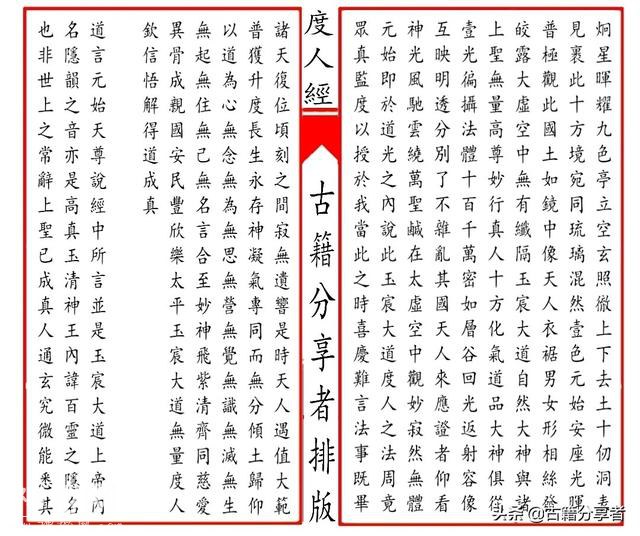 炯星暉耀九色亭立空玄照微上下去土十仞洞表
見裏此十方境宛同琉璃混然壹色元始安座光暉
普極觀此國土如鏡中像天人衣裾男女形相絲發
皎露大虛空中無有纖隔玉宸大道自然大神與諸
上聖無量高尊妙行真人十方化氣道品大神俱從
壹光徧攝法體十百千萬密如層谷回光返射容像
互映明透分別了不雜亂其國天人來應證者仰看
神光風馳雲繞萬聖鹹在太虛空中觀妙寂然無體
元始即於道光之內說此玉宸大道度人之法周竟
眾真監度以授於我當此之時喜慶難言法事既畢
度人經
古籍分享者排版
諸天復位頃刻之間寂無遺響是時天人遇值大範
普獲升度長生永存神凝氣專同而無分傾土歸仰
以道為心無念無為無思無營無覺無識無滅無生
無起無住無己無名言合至妙神飛紫清齊同慈愛
異骨成親國安民豐欣樂太平玉宸大道無量度人
欽信悟解得道成真
道言元始天尊說經中所言並是玉宸大道上帝內
名隱韻之音亦是高真玉清神王內諱百靈之隱名
也非世上之常辭上聖已成真人通玄究微能悉其
头条 @古籍分享者